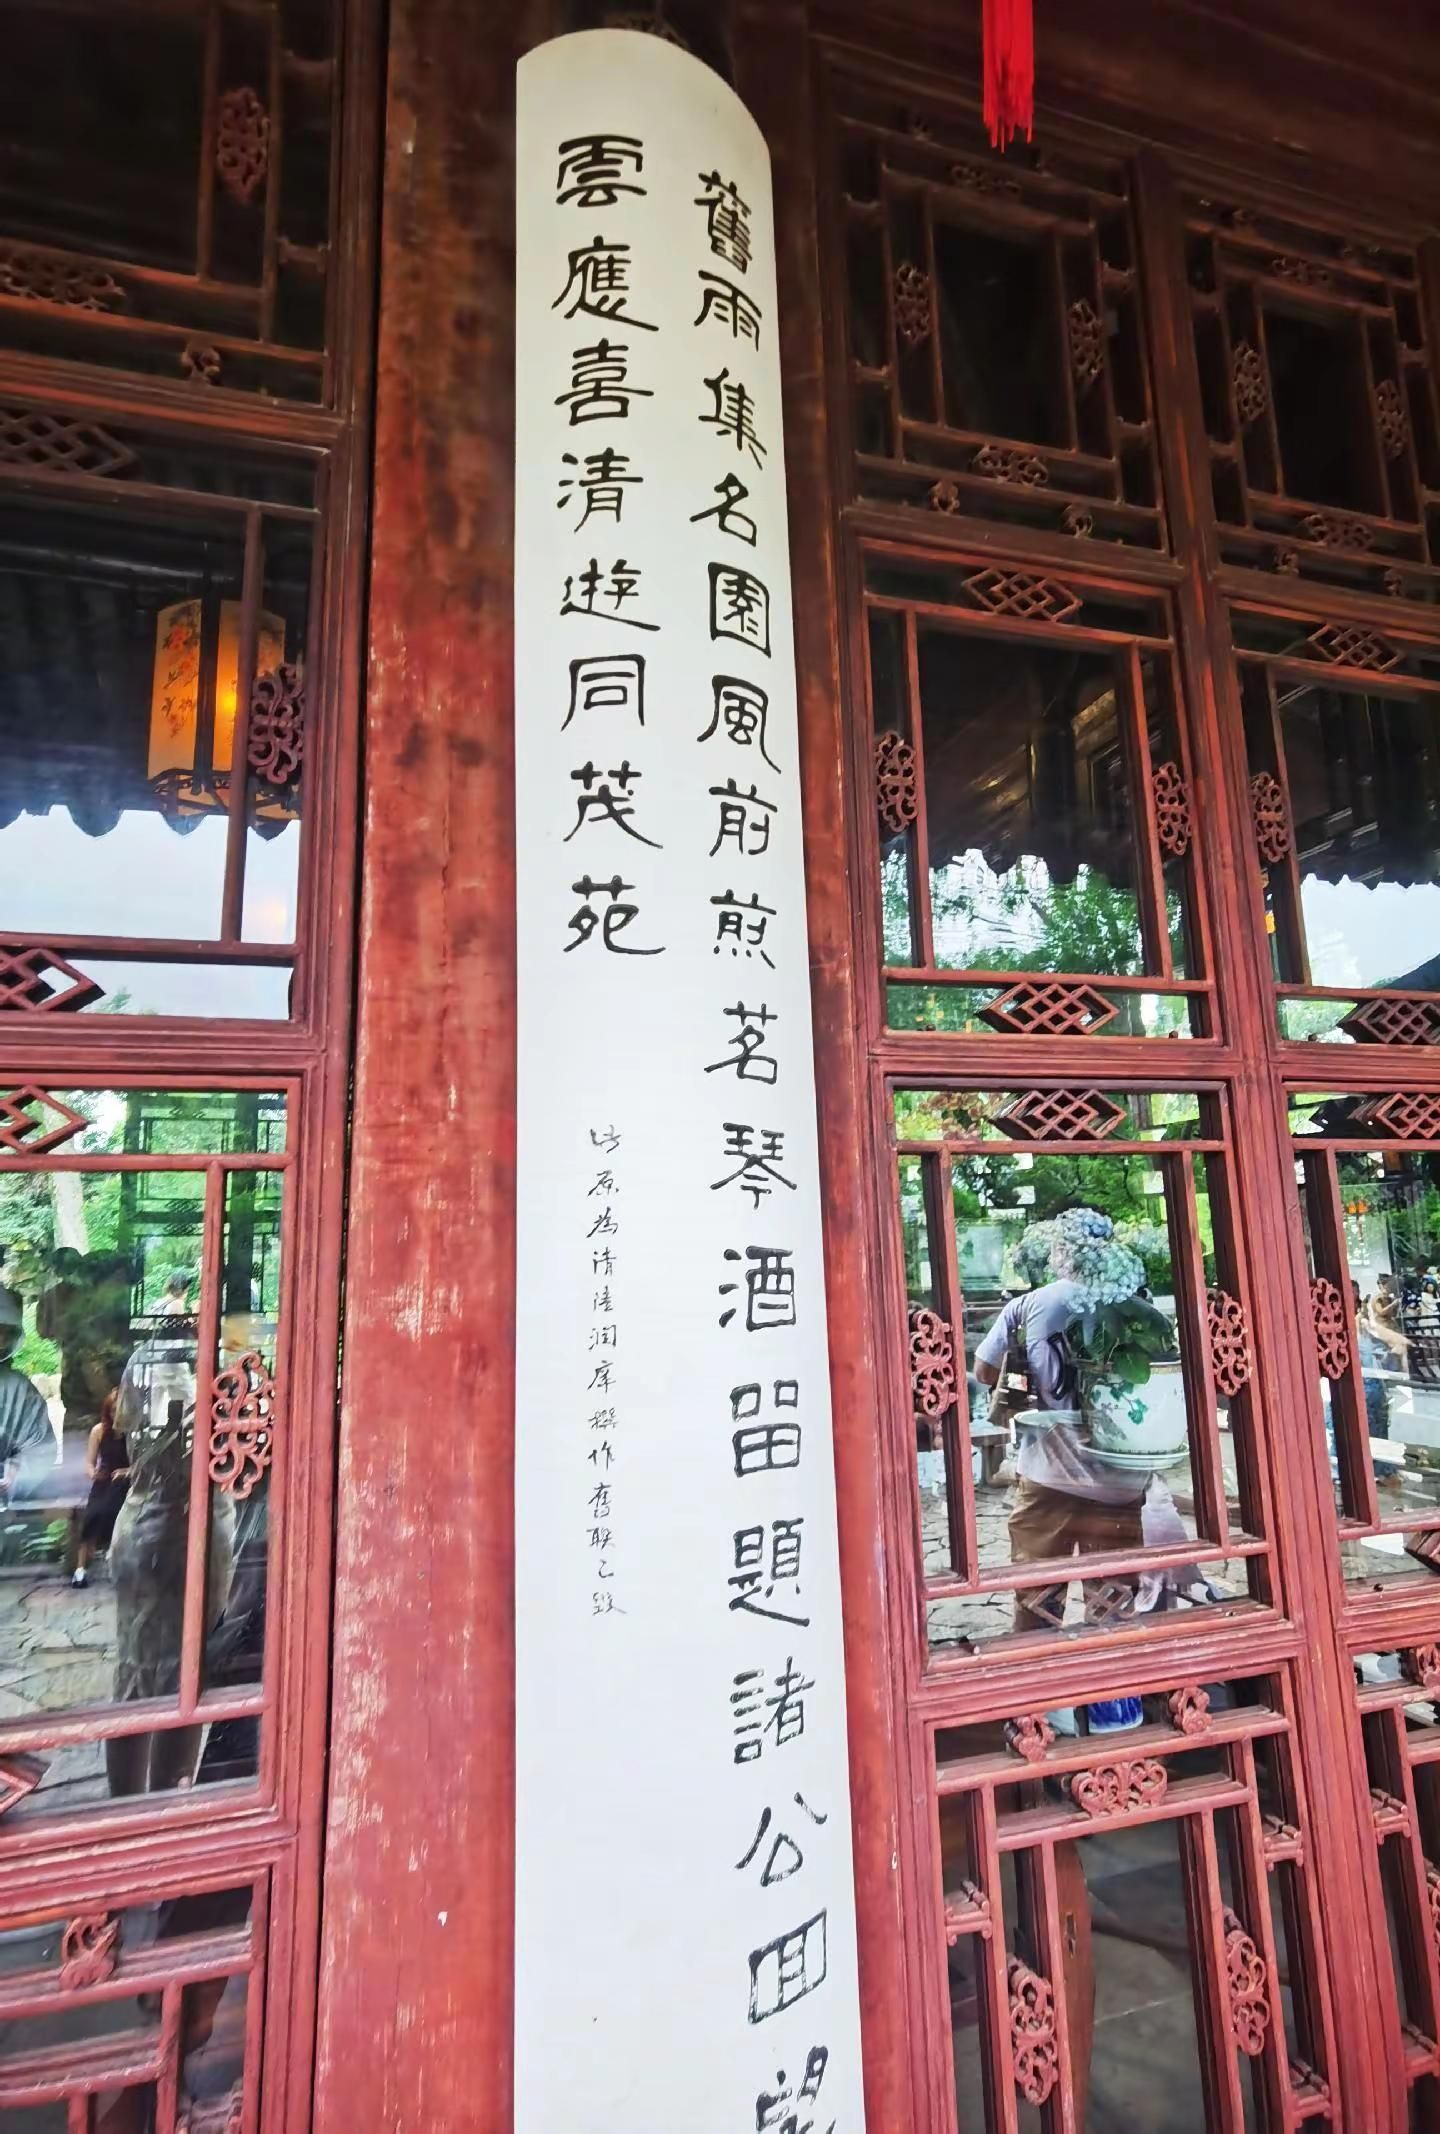 舊雨集名園風前煎茗琴酒留題諸公回望
雲應喜清遊同茂苑
此原為清陸潤庠撰作舊聯已毀